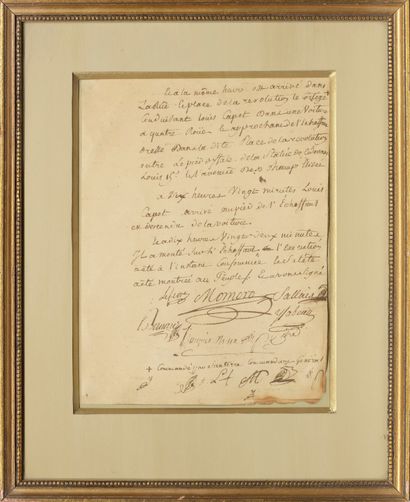 et a la même heure est arrivé dans
la dite place de la revolution le
Conduisant Louis Capet dans une Voiture
a quatre Roues le approchant de l'Echaffaut
dressé Dans la dite Place de la revolution
entre le pied d'Estal de la Statue de
Louis 15e et l'avenue des Champs Elisée
a dix heures Vingt minutes Louis
Capet arrivé au pied de l'Échaffaut
est descendu de la voiture.
et a dix heures Vingt Deux minutes
Il a monté Sur l'Echaffaut l'Execution
a été à l'instant Consommée la Tête
a été montrée au Peuple &
Lefevre Momoro Sallais
Isabeau
+ Commandant General